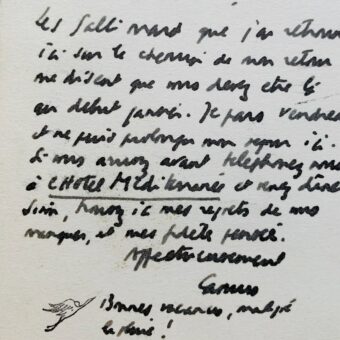 Les Gallimard que j'ai retrouvé
ici sur le chemin de mon retour
me disent que vous devez être là
au début janvier. Je pars vendredi
et ne puis prolonger mon repos ici.
Si vous arrivez avant téléphonez moi
à l'Hotel Méditerranée et venez dîner
Sinon, trouvez ici mes regrets de vous
manquer, et mes fidèles pensées.
Affectueusement
Camus
Bonnes vacances, malgré
la pluie !